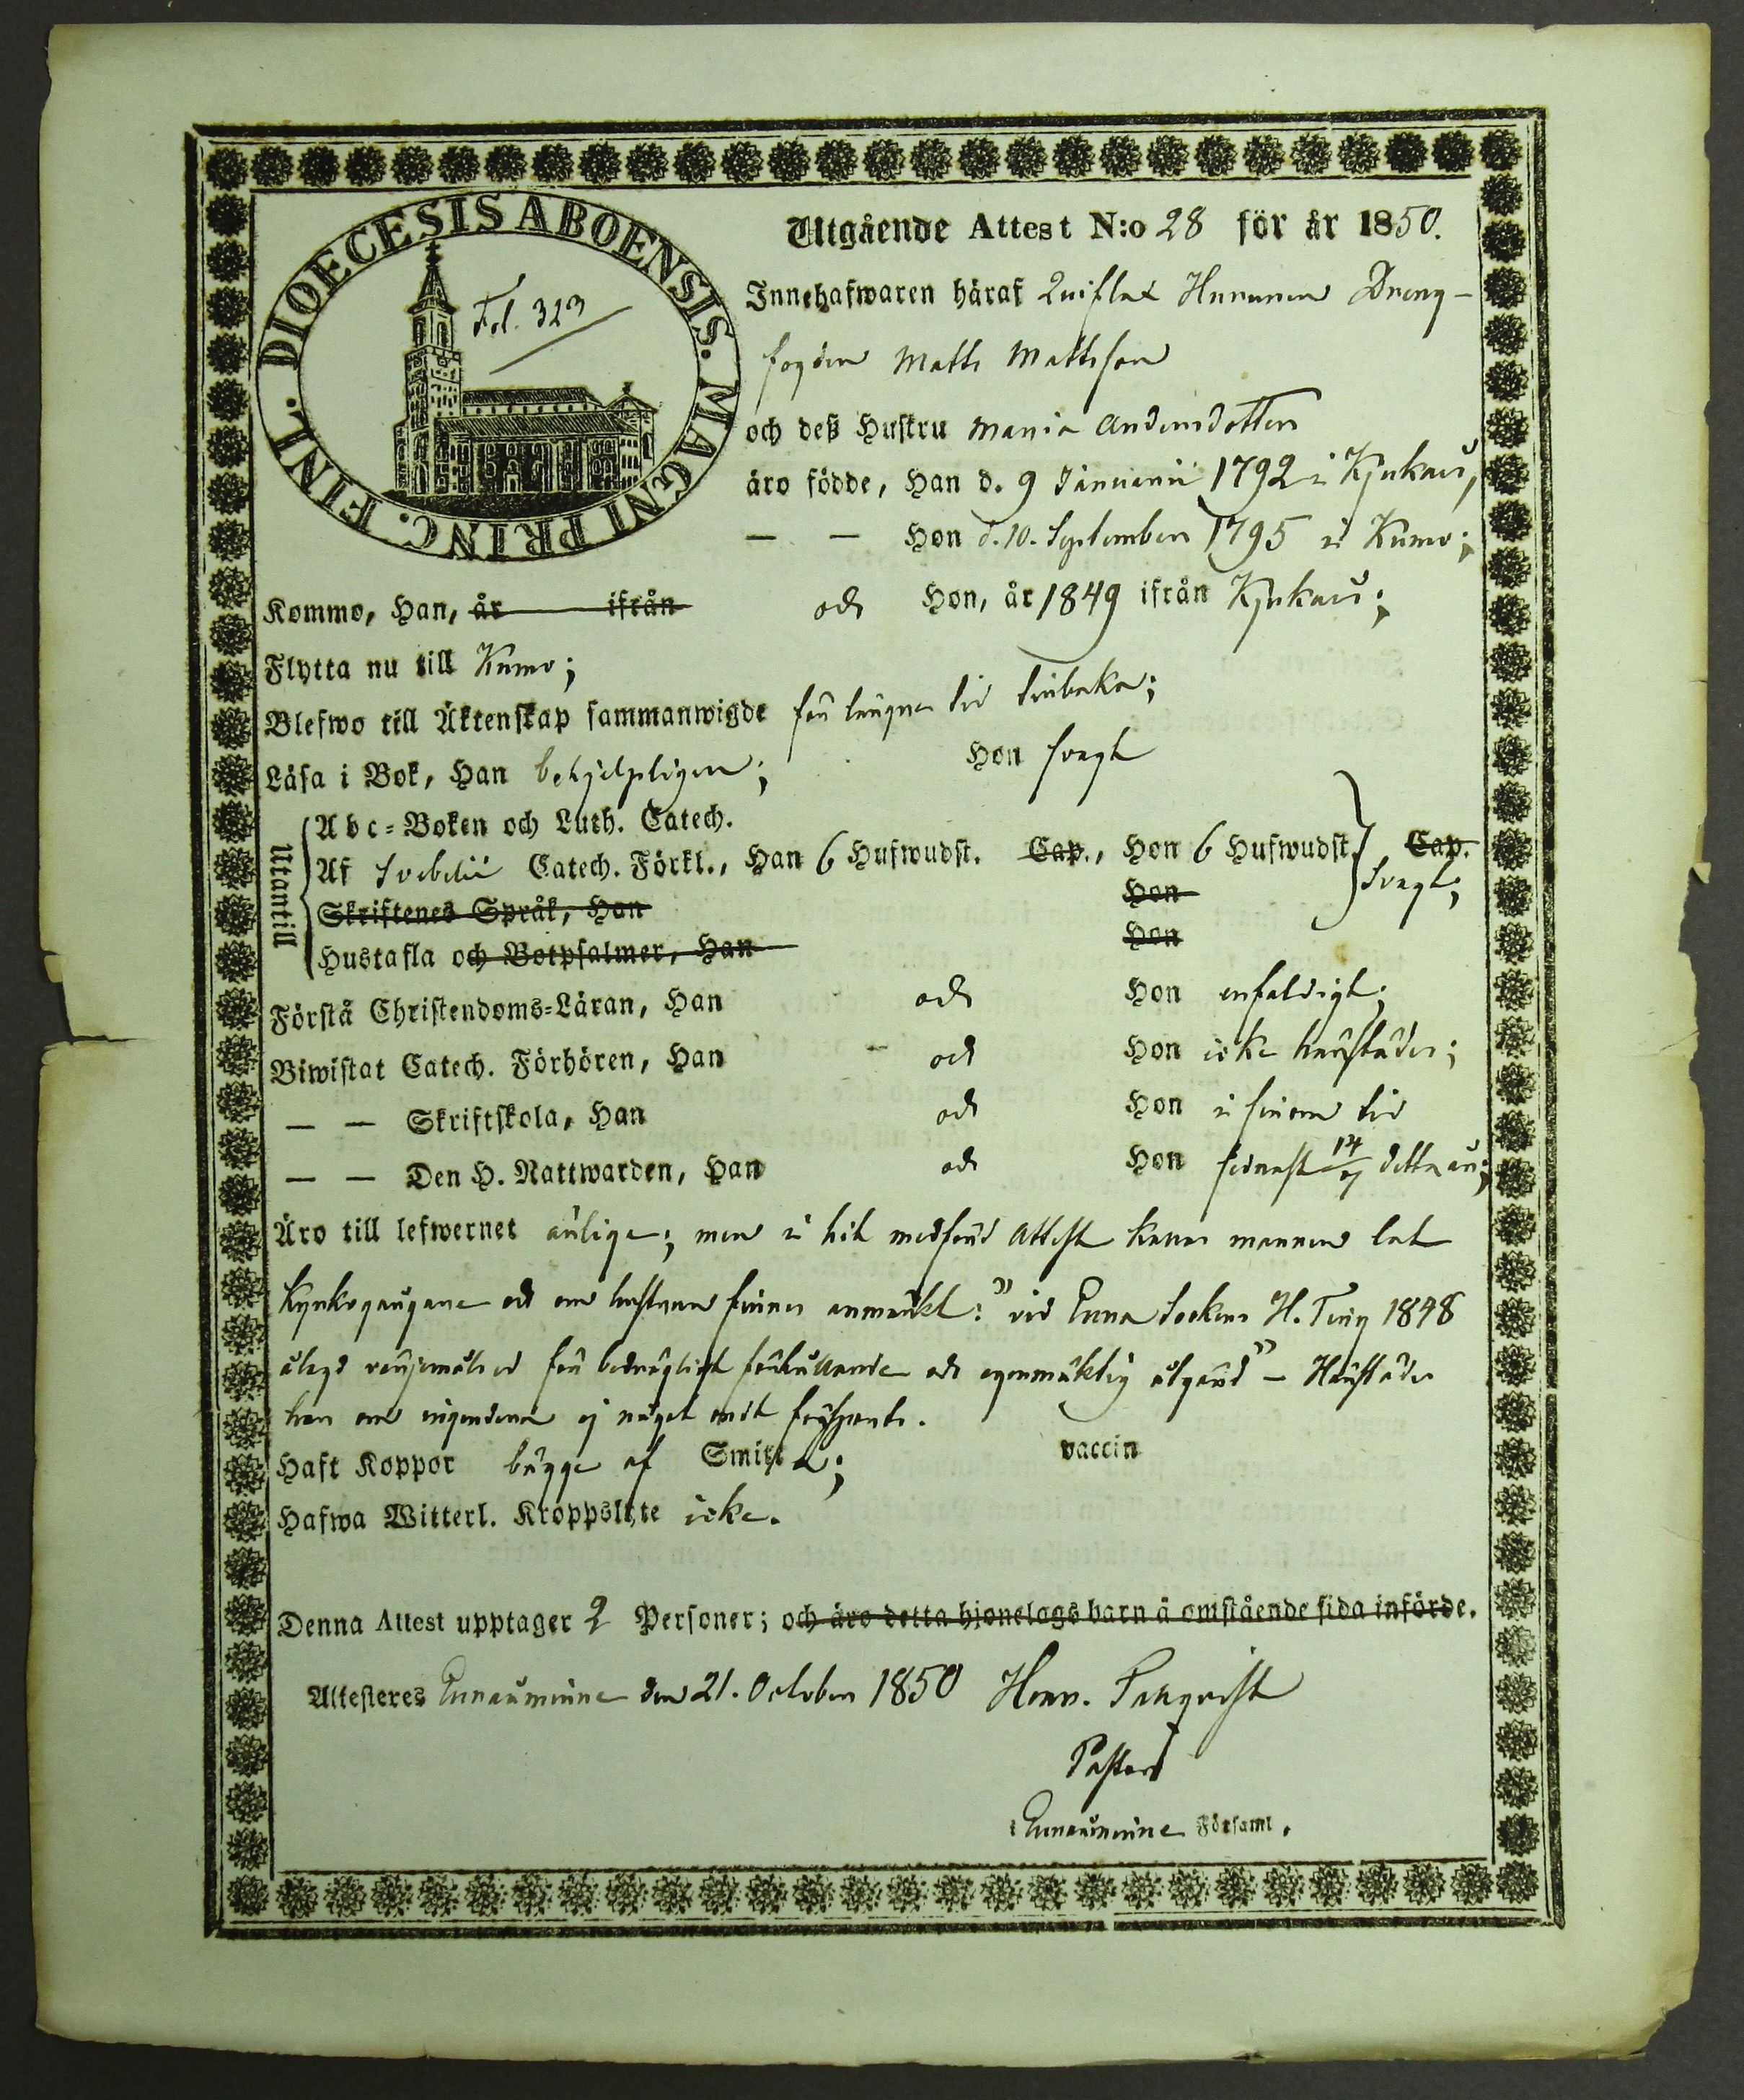 DIOECESIS ABOENSIS. MAGNI PRINC. FINL.
Fol. 323
Utgående Attest N:o 28 för år 1850.
Innehafwaren häraf Qviflax Dreng-
fogden Matts Mattsson
och deß Hustru Maria Andersdotter
äro födde, Han d. 9 Januarii 1792 i Kjukais,
— — Hon d. 10. September 1795 i Kumo;
Kommo, Han, år ifrån och Hon, år 1849 ifrån Kjukais;
Flytta nu till Kumo;
Blefwo till Äktenskap sammanwigde för längre tid tillbaka;
Läsa i Bok, Han behjelpligen; Hon svagt
Utantill
Abc-Boken och Luth. Catech.
Af Svebelii Catech. Förkl., Han 6 Hufwudst. Cap., Hon 6 Hufwudst. Cap.
Skriftenes Språk, Han Hon svagt;
Hustafla och Botpsalmer, Han Hon
Förstå Christendoms-Läran, Han och Hon enfaldigt;
Biwistat Catech. Förhören, Han och Hon icke härstädes;
— — Skriftskola, Han och Hon i sinom tid
— — Den H. Nattwarden, Han och Hon sednast detta år;
Äro till lefwernet ärlige; men i hit medförd attest kallas mannen lat
kyrkogångare och om hustrun finnes anmärkt: "vid Eura Sockens H. Ting 1848
ålagd för bedrägligt förhållande och egenmäktig åtgärd" – Härstädes
har om ingendera ej något ondt försports.
Haft Koppor bägge af Smitta; vaccin
Hafwa Witterl. Kroppslyte icke.
Denna Attest upptager 2 Personer; och äro detta hjonelags barn å omstående sida införde.
Attesteres Euraåminne den 21. October 1850 Henr.
Pastor
i Euraåminne Församl.